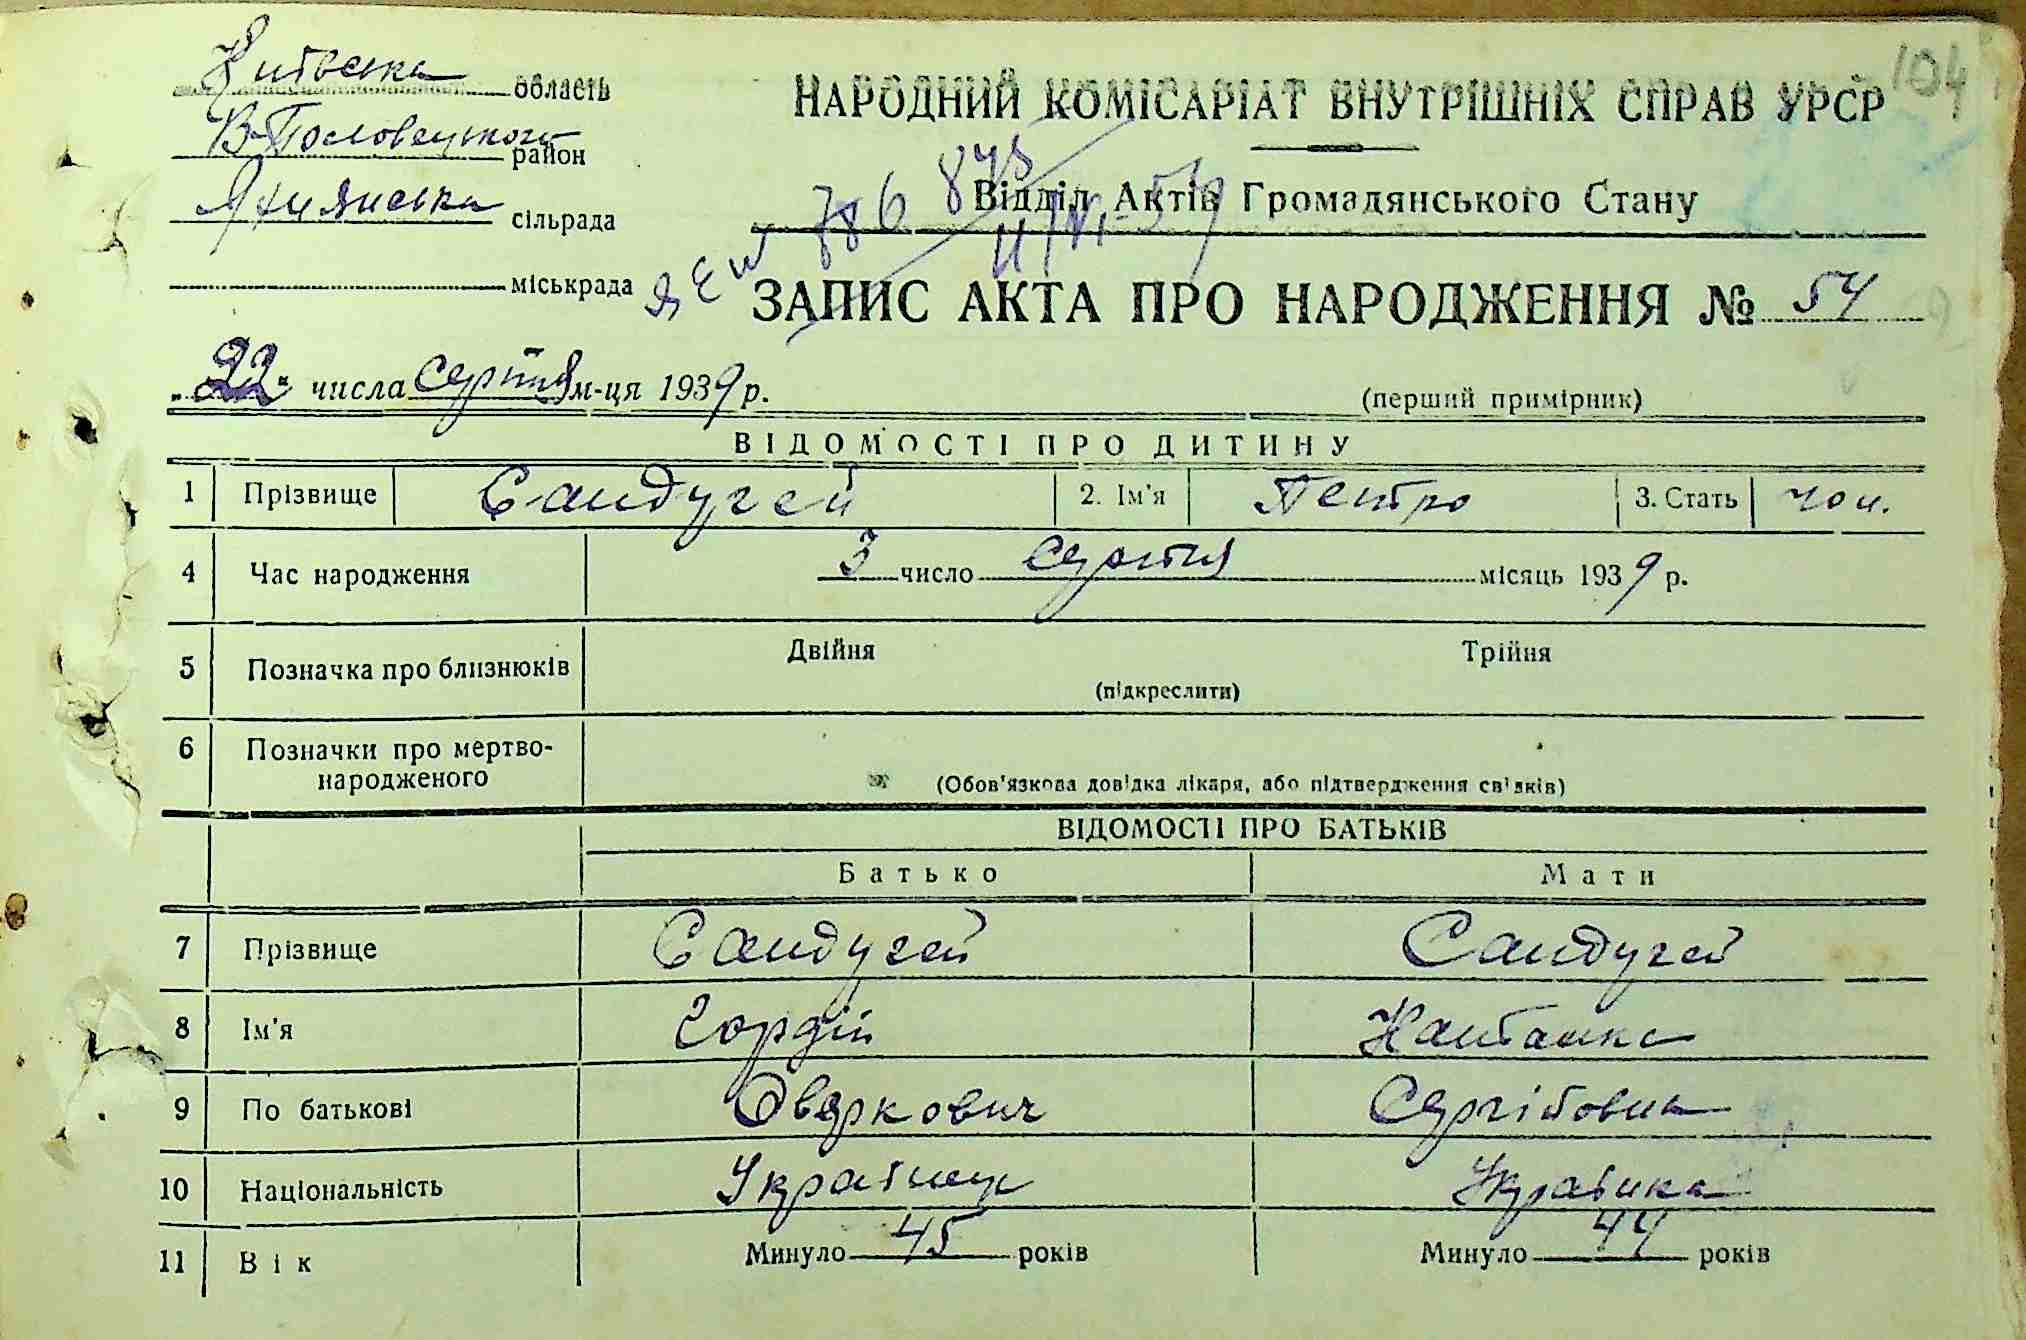 104
Київська область
В-Половецького район
сільрада
міськрада
НАРОДНИЙ КОМІСАРІАТ ВНУТРІШНІХ СПРАВ УРСР
Відділ Актів Громадянського Стану
ЗАПИС АКТА ПРО НАРОДЖЕННЯ № 54
„22“ числа серпня м-ця 1939 р.
(перший примірник)
ВІДОМОСТІ ПРО ДИТИНУ
1 Прізвище Сандугей 2. Ім'я Петро 3. Стать чол.
4 Час народження 3 число серпня місяць 1939 р.
5 Позначка про близнюків Двійня Трійня
(підкреслити)
6 Позначки про мертво-
народженого
(Обов'язкова довідка лікаря, або підтвердження свідків)
ВІДОМОСТІ ПРО БАТЬКІВ
Батько Мати
7 Прізвище Сандугей Сандугей
8 Ім'я Гордій
9 По батькові Оверкович Сергіївна
10 Національність Українець Українка
11 Вік Минуло 45 років Минуло 44 років